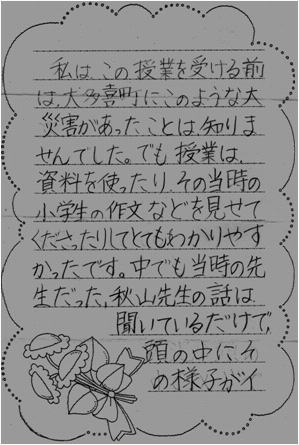 私は、この授業を受ける前
は、大多喜町にこのような大
災害があったことは、知りま
せんでした。でも授業は、
資料を使ったり、その当時の
小学生の作文などを見せて
くださったりしてとてもわかりやす
かったです。中でも当時の先
生だった、秋山先生の話は、
聞いているだけで、
頭の中にそ
の様子がイ